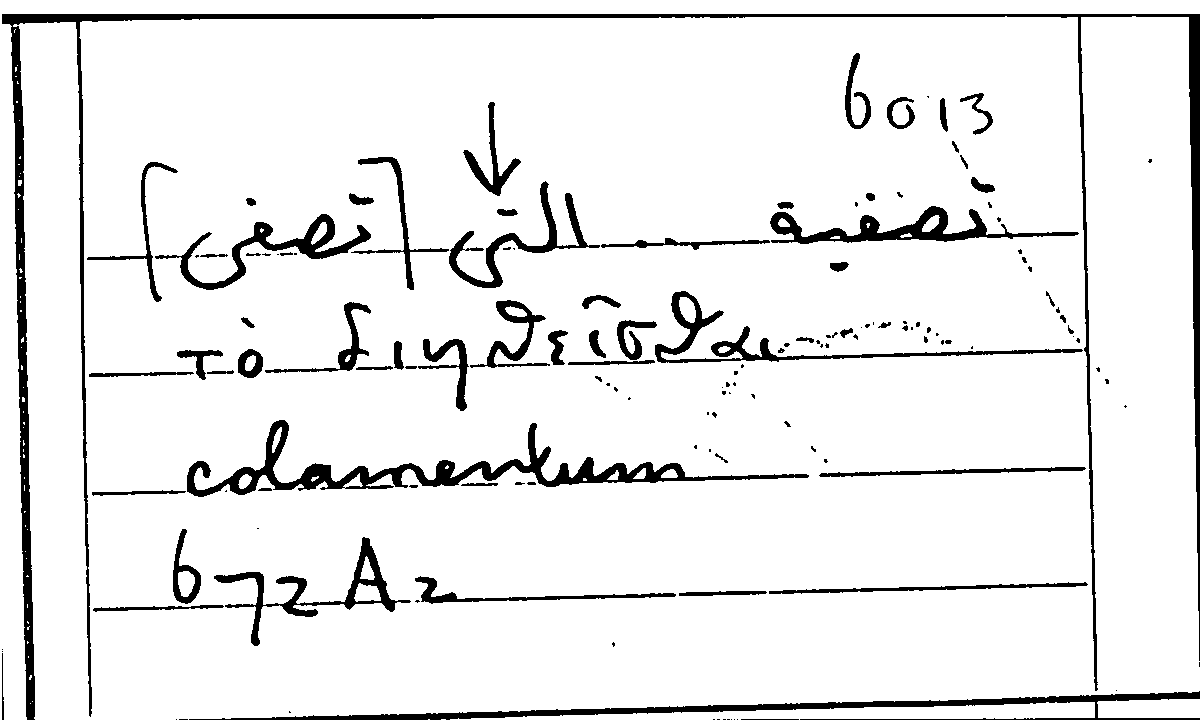 6013
↓
تصفية ... التى [تصفى]
τὸ διηθεῖσθαι
colamentum
672 A 2